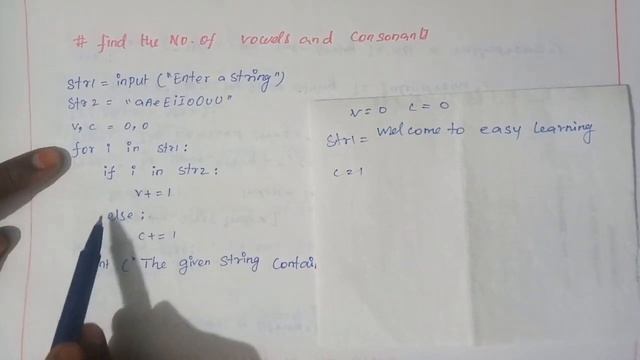 # find the No. of vowels and consonants
str1 = input ("Enter a string")
str2 = "aAeEiIoOuU"
v, c = 0, 0
for i in str1:
if i in str2:
v+=1
else:
c+=1
nt (" The given string contai
v=0 c=0
str1= welcome to easy learning
c=1